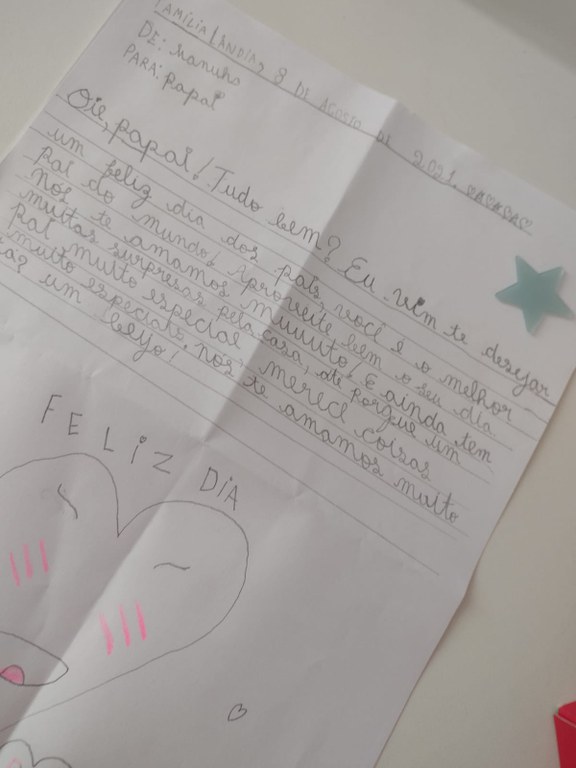 FAMÍLIA LÂNDIA, 8 DE AGOSTO DE 2.021.
DE: Manuho
PARA: Papai
Oie, papai! Tudo bem? Eu vim te desejar
um feliz dia dos pais, você é o melhor
pai do mundo, aproveite bem o seu dia.
Nós te amamos muuuuto! E ainda tem
muitas surpresas pela casa, até porque um
pai muito especial merece coisas
muito especiais, nós te amamos muito
um beijo!
FELIZ DIA